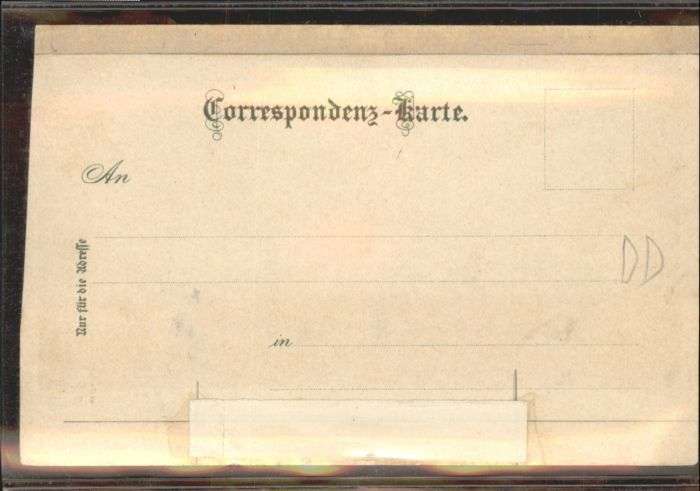 Correspondenz-Karte.
An
Nur für die Adresse
DD
in